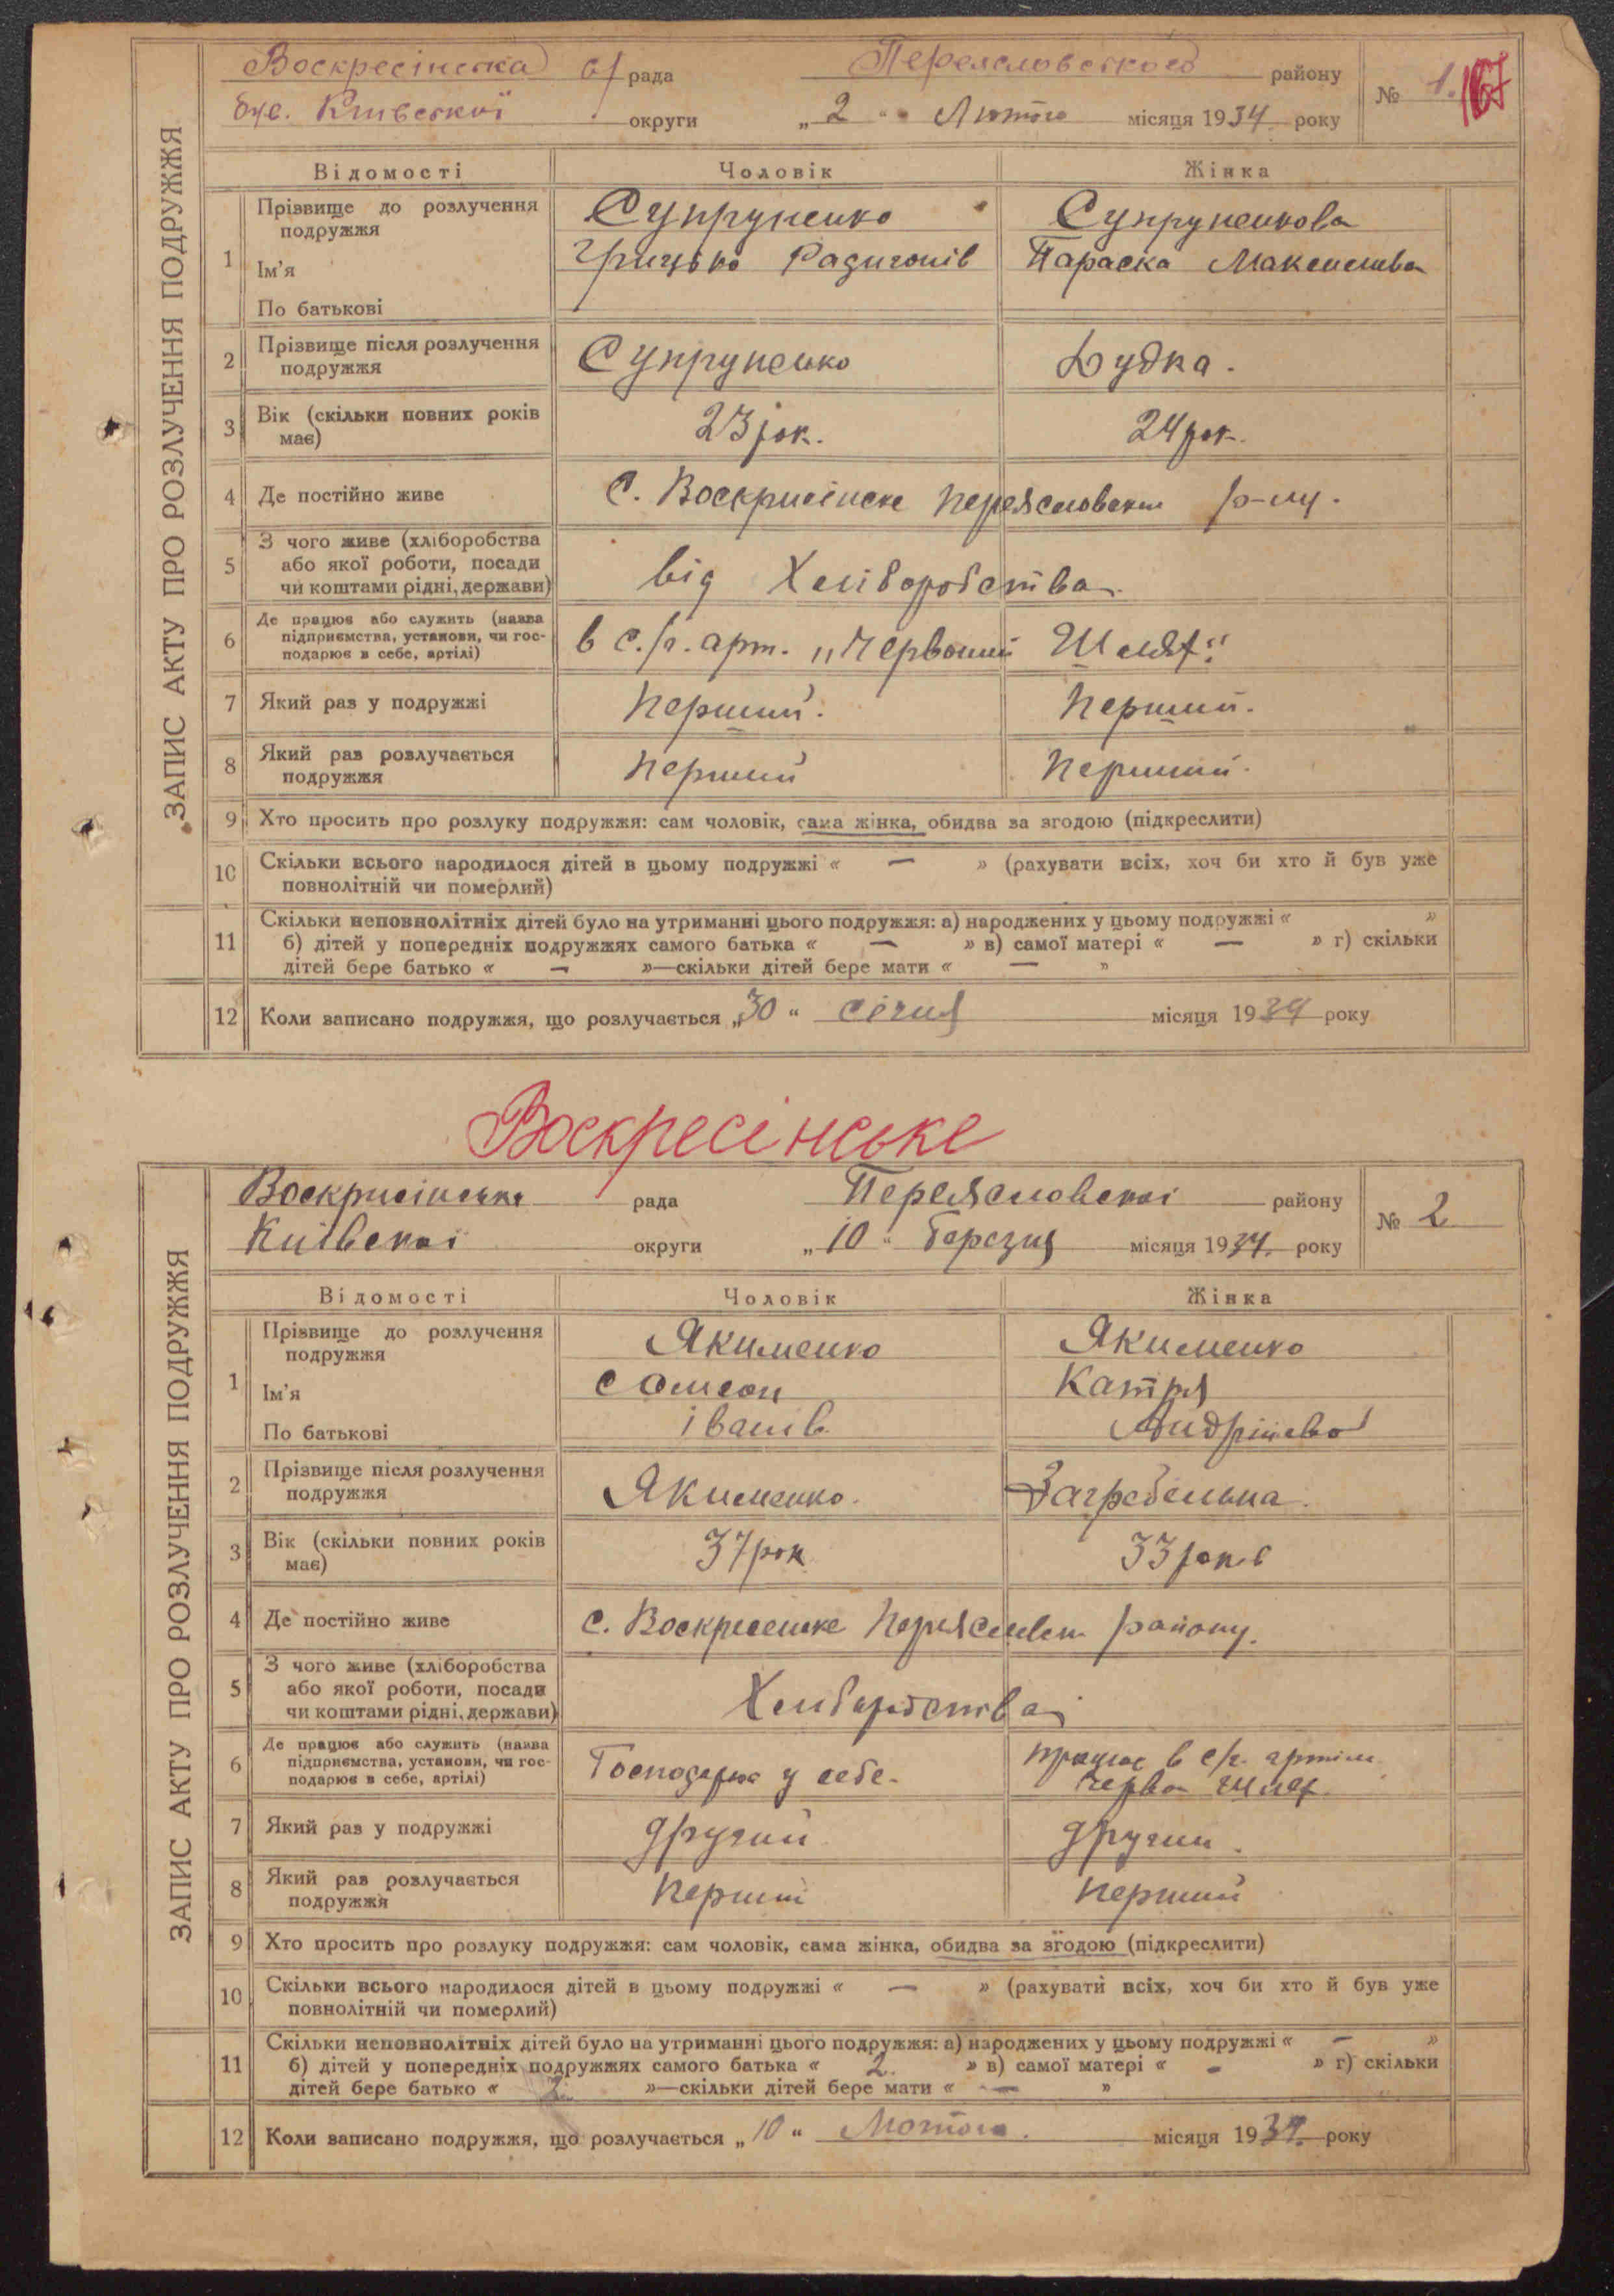 ЗАПИС АКТУ ПРО РОЗЛУЧЕННЯ ПОДРУЖЖЯ
Воскресінська с/рада Переяславського району № 1. 167
був. Київської округи „2“ Лютого місяця 1934 року
Відомості Чоловік Жінка
1 Прізвище до розлучення подружжя Супруненко Супруненкова
Ім'я Грицько Радигонів Параска Максимова
По батькові
2 Прізвище після розлучення подружжя Супруненко Дудка.
3 Вік (скільки повних років має) 23 рок. 24 рок.
4 Де постійно живе С. Воскрисінське Переяславськ р-ну.
5 З чого живе (хліборобства або якої роботи, посади чи коштами рідні, держави) від Хліборобства
6 Де працює або служить (назва підприємства, установи, чи господарює в себе, артілі) в с./г. арт. „Червоний Шлях“
7 Який раз у подружжі Перший. Перший.
8 Який раз розлучається подружжя Перший Перший.
9 Хто просить про розлуку подружжя: сам чоловік, сама жінка, обидва за згодою (підкреслити)
10 Скільки всього народилося дітей в цьому подружжі « — » (рахувати всіх, хоч би хто й був уже
повнолітній чи померлий)
11 Скільки неповнолітніх дітей було на утриманні цього подружжя: а) народжених у цьому подружжі « »
б) дітей у попередніх подружжях самого батька « — » в) самої матері « — » г) скільки
дітей бере батько « — »—скільки дітей бере мати « — »
12 Коли записано подружжя, що розлучається „30“ січня місяця 1934 року
Воскресінське
ЗАПИС АКТУ ПРО РОЗЛУЧЕННЯ ПОДРУЖЖЯ
Воскрисінська рада Переяславскої району № 2
Київскої округи „10“ березня місяця 1934. року
Відомості Чоловік Жінка
1 Прізвище до розлучення подружжя Якименко Якименко
Ім'я Самсон Катря
По батькові іванів Андріїева
2 Прізвище після розлучення подружжя Якименко. Загребельна.
3 Вік (скільки повних років має) 37 рок 33 років
4 Де постійно живе с. Воскресенске Переяславск району.
5 З чого живе (хліборобства або якої роботи, посади чи коштами рідні, держави) Хліборобства
6 Де працює або служить (назва підприємства, установи, чи господарює в себе, артілі) Господарює у себе. працює в с/г. артіли
Черво шлях.
7 Який раз у подружжі другий другий.
8 Який раз розлучається подружжя Перший Перший
9 Хто просить про розлуку подружжя: сам чоловік, сама жінка, обидва за згодою (підкреслити)
10 Скільки всього народилося дітей в цьому подружжі « — » (рахувати всіх, хоч би хто й був уже
повнолітній чи померлий)
11 Скільки неповнолітніх дітей було на утриманні цього подружжя: а) народжених у цьому подружжі « — »
б) дітей у попередніх подружжях самого батька « 2. » в) самої матері « - » г) скільки
дітей бере батько « 2. »—скільки дітей бере мати « — »
12 Коли записано подружжя, що розлучається „10“ Лютого. місяця 1934. року